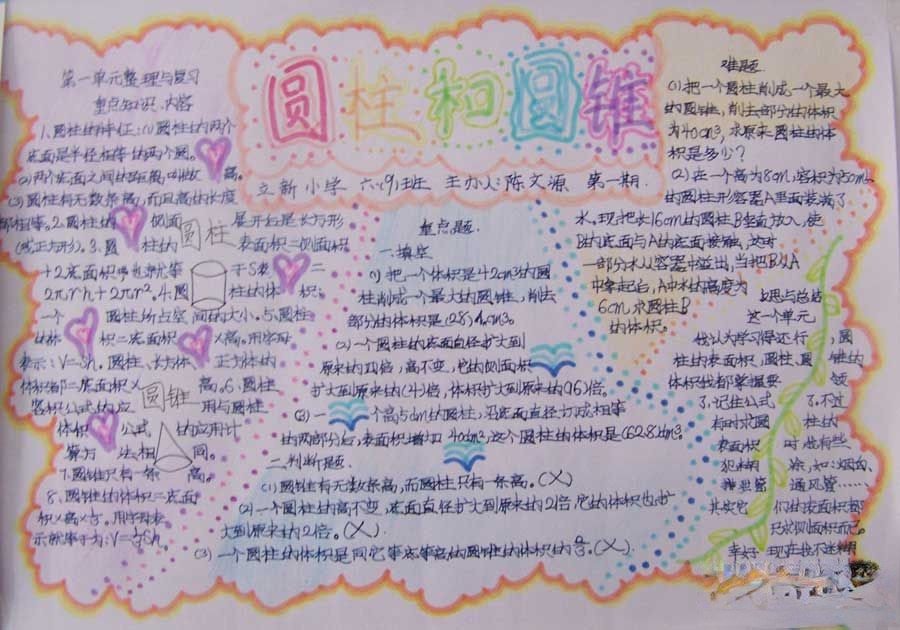 圆柱和圆锥
立新小学 六(9)班 主办人:陈文源 第一期.
第一单元整理与复习
重点知识、内容
1.圆柱的特征:(1)圆柱的两个
底面是半径相等的两个圆。
(2)两个底面之间的距离,叫做 高。
(3)圆柱有无数条高,而且高的长度
都相等。2.圆柱的 侧面 圆柱 展开后是长方形
(或正方形)。3.圆 柱的 表面积=侧面积
+2底面积 就等 于S表 =
2πrh+2πr²。4.圆 柱的体 积:
一个 圆柱所占空 间的大小。5.圆柱
的体 积=底面积 ×高。用字母
表示:V=Sh。圆柱、长方体 正方体的
体积都=底面积× 圆锥 高。6.圆柱
容积公式的应 用与圆柱
体积 公式 的应用计
算方 法相 同。
7.圆锥只有一条 高。
8.圆锥的体积=底面
积×高×⅓。用字母表
示就等于为:V=⅓Sh。
重点题.
一.填空
1)把一个体积是42cm³的圆
柱削成一个最大的圆锥,削去
部分的体积是(28)cm³。
(2)一个圆柱的底面直径扩大到
原来的4倍,高不变,它的侧面积
扩大到原来的(4)倍,体积扩大到原来的(16)倍。
(3)一 个高 的圆柱,沿底面直径切成相等
的两部分后,表面积增加 40cm²,这个圆柱的体积是(62.8)cm³。
二.判断题.
(1)圆锥有无数条高,而圆柱只有一条高。(×)
(2)一个圆柱的高不变,底面直径扩大到原来的2倍,它的体积也扩
大到原来的2倍。(×).
(3)一个圆柱的体积是同它等底等高的圆锥的体积的⅓。(×).
难题
(1)把一个圆柱削成一个最大
的圆锥,削去部分的体积
为40cm³,求原来圆柱的体
积是多少?
(2)在一个高为8cm,容积为
的圆柱形容器A里面装满了
水。现把长16cm的圆柱B垂直放入,使
B的底面与A的底面接触,这时
一部分水从容器中溢出,当把B从A
中拿起后,A中水的高度为
6cm,求圆柱B
的体积。
反思与总结
这一个单元
我认为学习得还行 ,圆
柱的表面积、圆柱、圆 锥的
体积我都掌握要 领
了,记住公式 了,不过
有时求圆 柱的
表面积 时也有些
犯糊 涂,如:烟囱、
排水管 通风管……
其实它 们的表面积都
只求侧面积而已。
幸好 现在我不迷糊